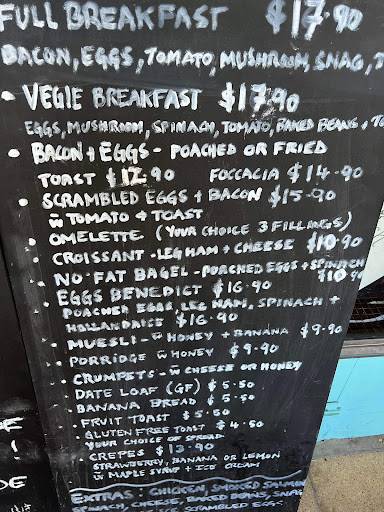 FULL BREAKFAST $17.90
BACON, EGGS, TOMATO, MUSHROOM, SNAG, T
• VEGIE BREAKFAST $17.90
EGGS, MUSHROOM, SPINACH, TOMATO, BAKED BEANS, TO
• BACON + EGGS - POACHED OR FRIED
TOAST $12.90 FOCCACIA $14.90
• SCRAMBLED EGGS + BACON $15.90
W TOMATO + TOAST
• OMELETTE (YOUR CHOICE 3 FILLINGS)
• CROISSANT - LEG HAM + CHEESE $10.90
• NO FAT BAGEL - PORCHED EGGS + SPINACH
$10.90
• EGGS BENEDICT $16.90
POACHED EGGS, LEG HAM, SPINACH +
HOLLANDAISE $16.90
• MUESLI - W HONEY + BANANA $9.90
• PORRIDGE W HONEY $9.90
• CRUMPETS - W CHEESE OR HONEY
• DATE LOAF (GF) $5.50
• BANANA BREAD $5.50
• FRUIT TOAST $5.50
• GLUTEN FREE TOAST $4.50
YOUR CHOICE OF SPREAD
• CREPES $13.90
STRAWBERRY, BANANA OR LEMON
W MAPLE SYRUP + ICE CREAM
EXTRAS: CHICKEN, SMOKED SALMON
SPINACH, CHEESE, BAKED BEANS, SNAG
SCRAMBLED EGGS